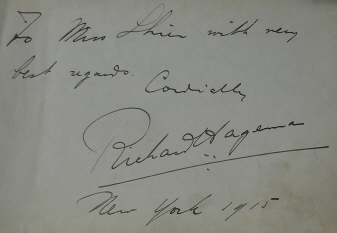 To Miss Shier with very
best regards.
Cordially
Richard Hageman
New York 1915